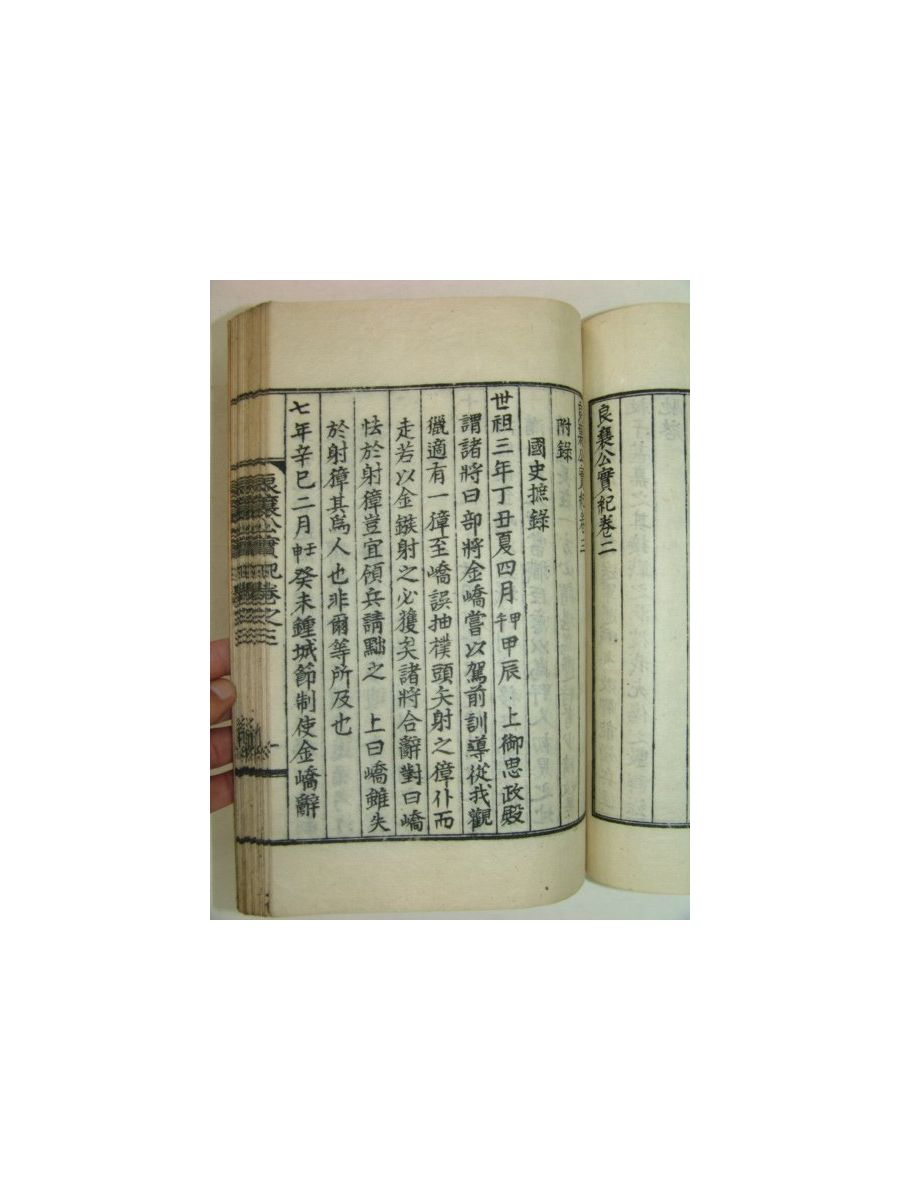 良襄公實紀卷二
良襄公實紀卷三
附錄
國史摭錄
世祖三年丁丑夏四月壬午甲辰 上御思政殿
謂諸將曰部將金嶠嘗以駕前訓導從我觀
獵適有一獐至嶠誤抽樸頭矢射之獐仆而
走若以金鏃射之必獲矣諸將合辭對曰嶠
怯於射獐豈宜領兵請黜之 上曰嶠雖失
於射獐其爲人也非爾等所及也
七年辛巳二月壬申癸未鍾城節制使金嶠辭
良襄公實紀卷之三
一